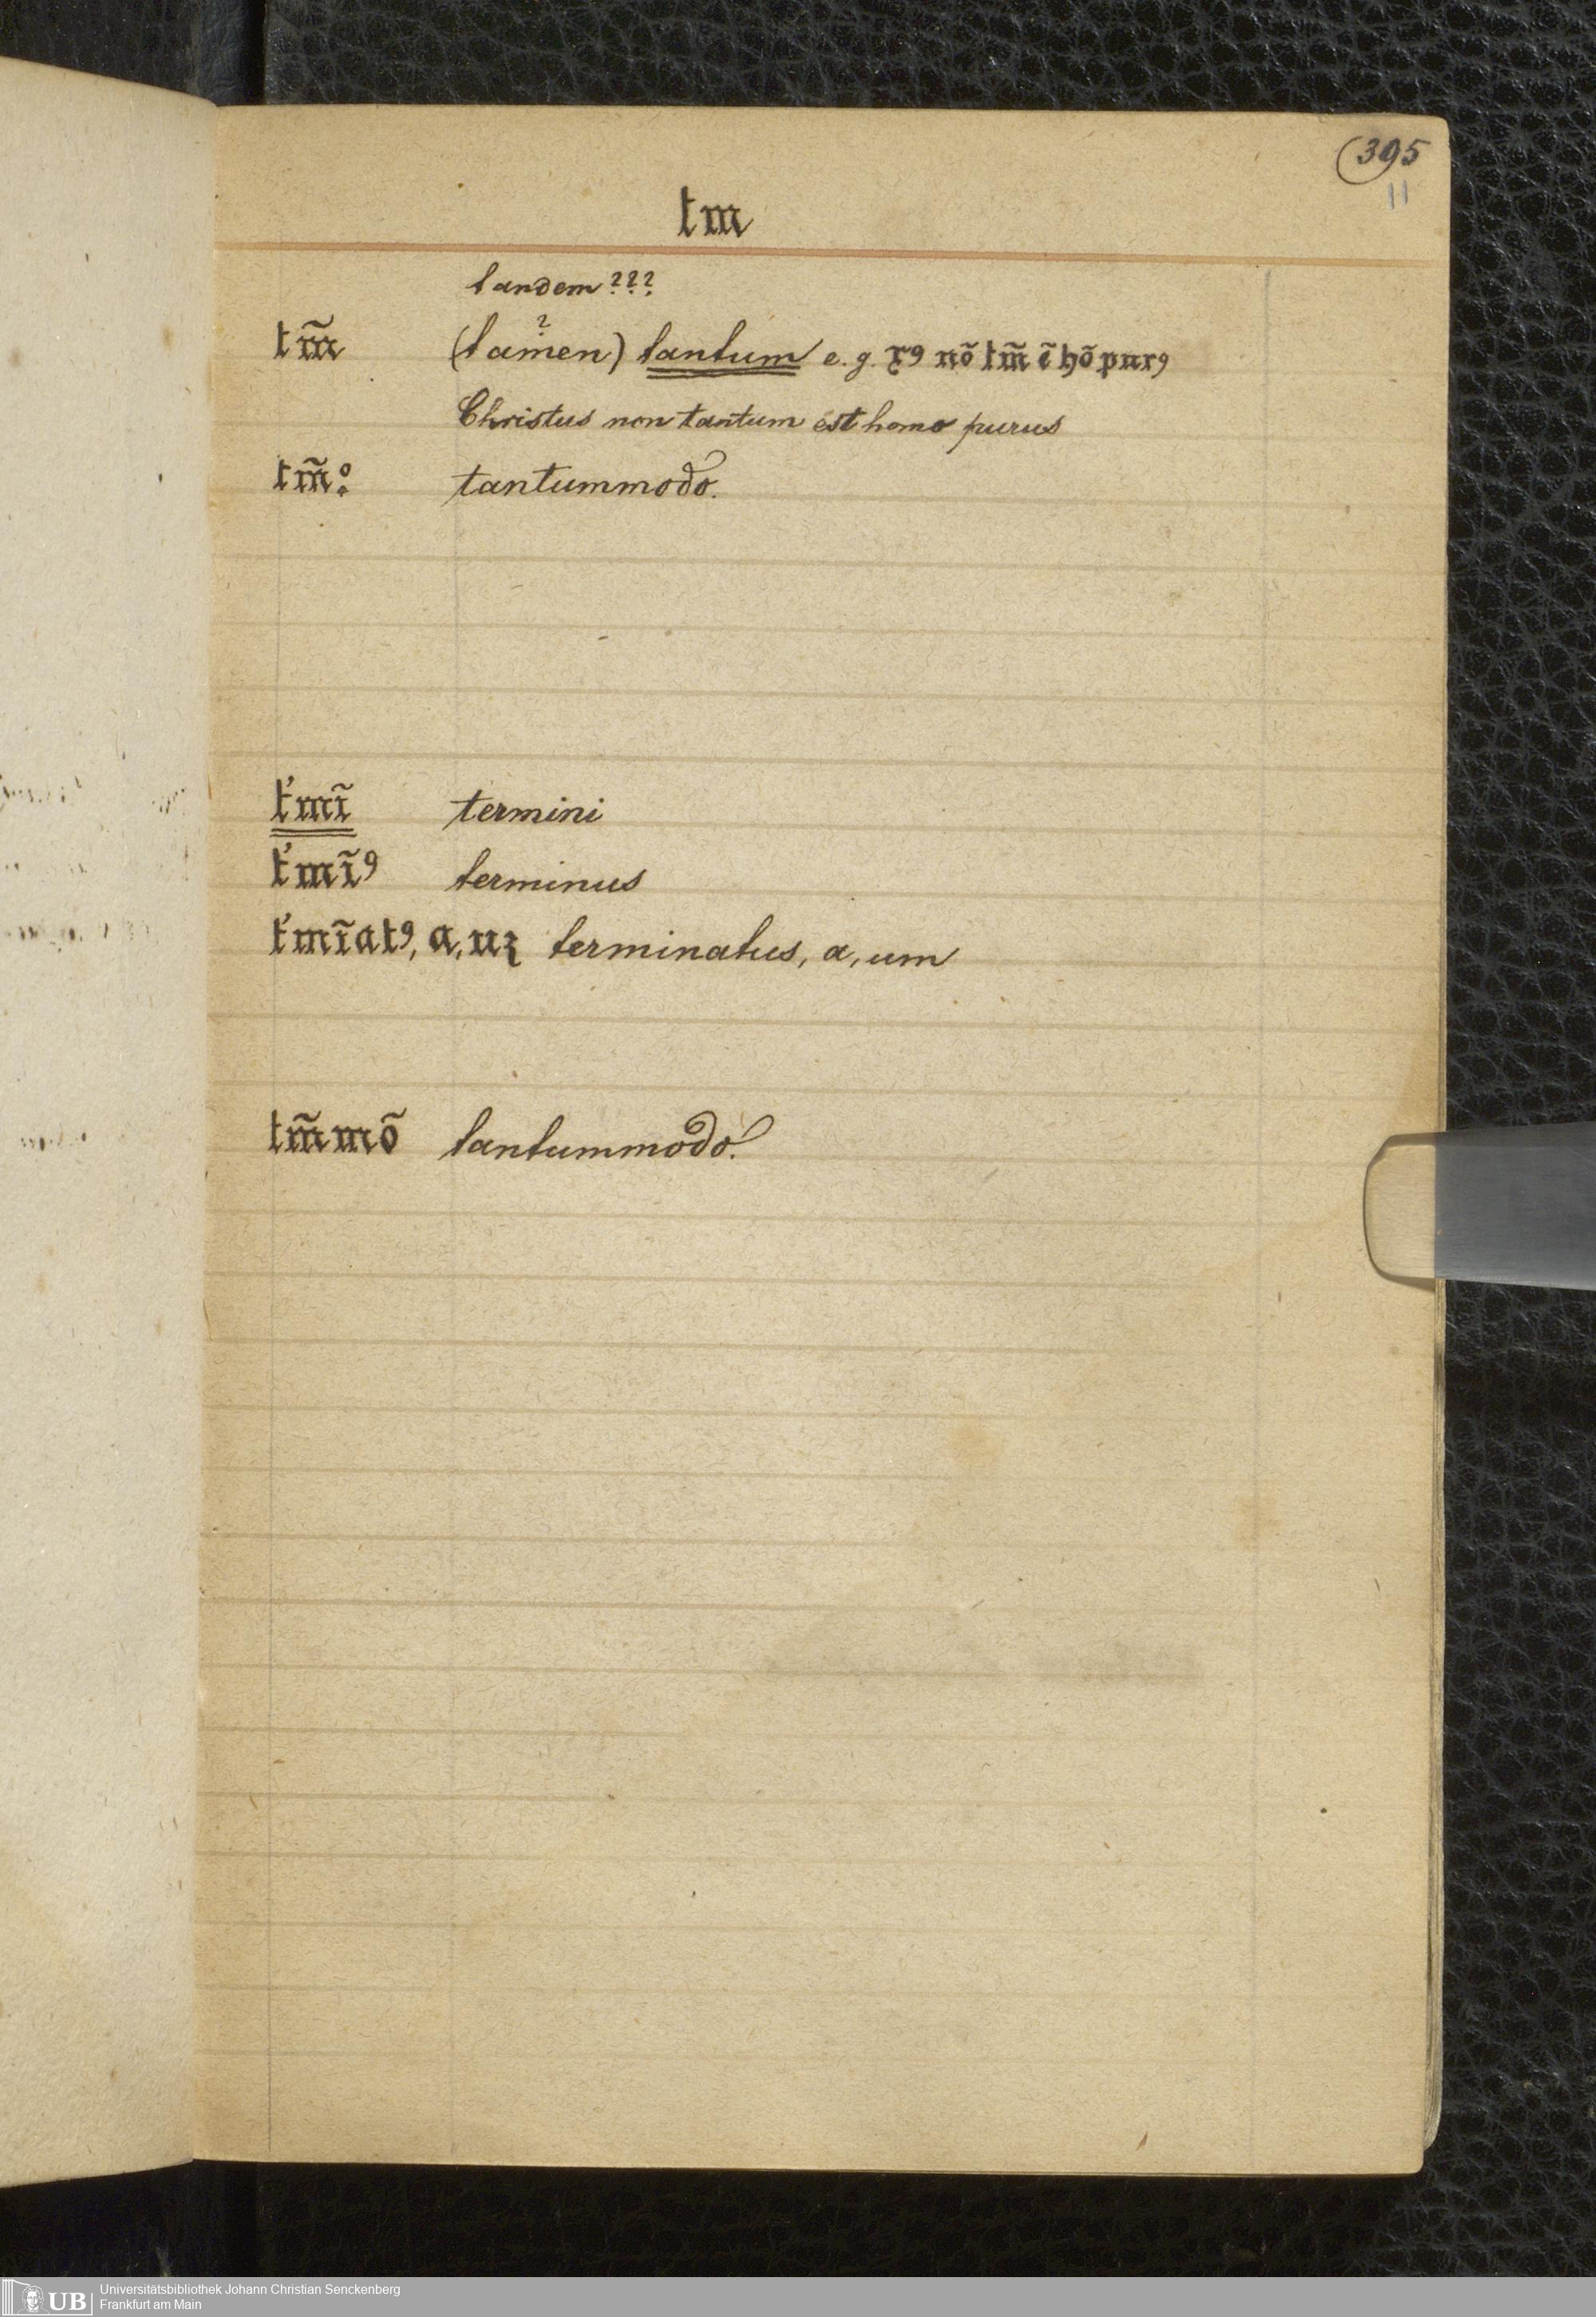 395
11
tm
tandem ???
?
tm̃ (tamen) tantum e. g. xꝰ nõ tm̃ ẽ hõ purꝰ
Christus non tantum est homo purus
tm̃o. tantummodo.
t'mĩ termini
t'mĩꝰ terminus
t'mĩatꝰ, a, uʒ terminatus, a, um
tm̃mõ tantummodo!
UB Universitätsbibliothek Johann Christian Senckenberg
Frankfurt am Main